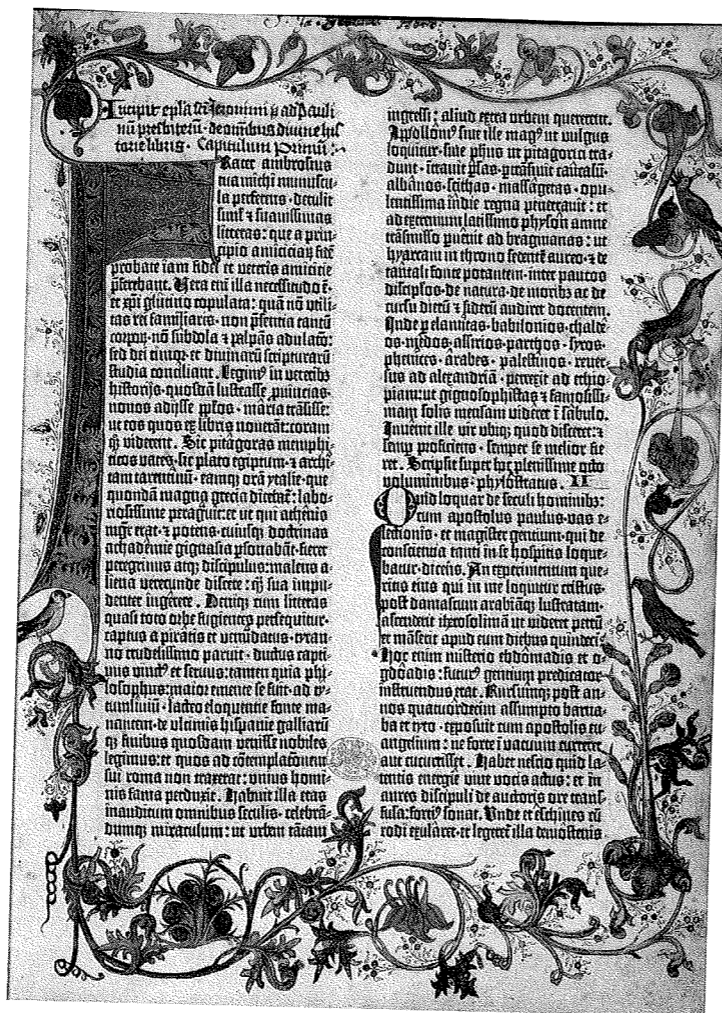 Incipit epl̄a sc̄i Jeronimi p̄ ad Pauli
nū presbiterū · de om̄ibus diuine his
torie libris · Capitulum Primū :
Frater ambrosius
tua michi munuscu-
la perferens · detulit
simĺ ⁊ suauissimas
litteras : que a prin-
cipio amiciciaꝝ · fidē
probate iam fidei et veteris amicicie
ꝓferebant. Vera enī illa necessitudo ē ·
et xp̄i glutino copulata : quā nō vtili-
tas rei familiaris · non p̄sentia tantū
corpoꝝ · nō subdola ⁊ palpās adulatō :
sed dei timoꝛ · et diuinarū scripturarū
studia conciliant. Legimꝰ in veteribꝫ
historijs · quosdā lustrasse ꝓuincias ·
nouos adijsse pp̄los · maria trāsisse :
ut eos quos ex libris nouerāt : coram
qꝫ viderent. Sic pitagoras memphi-
ticos vates · sic plato egiptum · ⁊ archi-
tam tarentinū · eamqꝫ orā ytalie · que
quondā magna grecia dicebat᷑ : labo-
riosissime peragrauit : et ut qui athenis
mgr̄ erat · ⁊ potens · cuiusqꝫ doctrinas
achademie gignasia ꝑsonabāt · fieret
peregrinus atqꝫ discipulus : malens a-
liena verecunde discere : qꝫ sua impu-
denter ingerere. Deniqꝫ cum litteras
quasi toto orbe fugientes persequitur ·
captus a piratis et venundatus · tyran-
no crudelissimo paruit · ductus capti-
uus vinctꝰ et seruus : tamen quia phi-
losophus : maior emente se fuit · ad ty-
tumliuiū · lacteo eloquentie fonte ma-
nantem · de vltimis hispanie galliarū
qꝫ finibus quosdam venisse nobiles
legimus : et quos ad cōtemplationem
sui roma non traxerat : vnius homi-
nis fama perduxit. Habuit illa etas
inauditum omnibus seculis · celebrā-
dumqꝫ miraculum : ut urbem tātam
ingressi : aliud extra urbem quererent.
Apollonꝰ siue ille magꝰ ut vulgus
loquitur · siue ph̄us ut pitagorici tra-
dunt · ītrauit ꝑsas · ꝑtrāsiuit caucasū ·
albānos · scithas · massagetas · opu-
lentissima indie regna penetrauit : et
ad extremum latissimo physon amne
trāsmisso puenit ad bragmanas : ut
hyarcam in throno sedentē aureo · ⁊ de
tantali fonte potantem · inter paucos
discip̄los · de natura · de moribꝫ ac de
cursu dierū ⁊ siderū audiret docentem.
Inde ꝑ elamitas · babilonios · chalde-
os · medos · assirios · parthos · syros ·
phenices · arabes · palestinos · reuer-
sus ad alexandriā · perrexit ad ethio-
piam : ut gignosophistas ⁊ famosissi-
mam solis mensam videret ī sabulo.
Inuenit ille vir vbiqꝫ quod disceret : ⁊
semꝑ proficiens · semper se melior fie-
ret. Scripsit super hoc plenissime octo
voluminibus · phylostratus. II
Quid loquar de seculi hominibꝫ :
cum apostolus paulus · vas e-
lectionis · et magister gentium · qui de
conscientia tanti in se hospitis loque-
batur · dicens. An experimentum que-
ritis eius qui in me loquitur cristus.
Post damascum arabiāqꝫ lustratam ·
ascenderit iherosolimā ut videret petrū
et māserit apud eum diebus quindeci.
Hoc enim misterio ebdōmadis et o-
gdōadis : futurꝰ gentium predicator
instruendus erat. Rursumqꝫ post an-
nos quatuordecim assumpto barna-
ba et tyto · exposuit cum apostolis eu-
angelium : ne forte ī vacuum curreret
aut cucurrisset. Habet nescio quid la-
tentis energie viue vocis actus : et in
aures discipuli de auctoris ore trans-
fusa : fortiꝰ sonat. Vnde et eschines cū
rodi exularet · et legeret᷑ illa demostenis